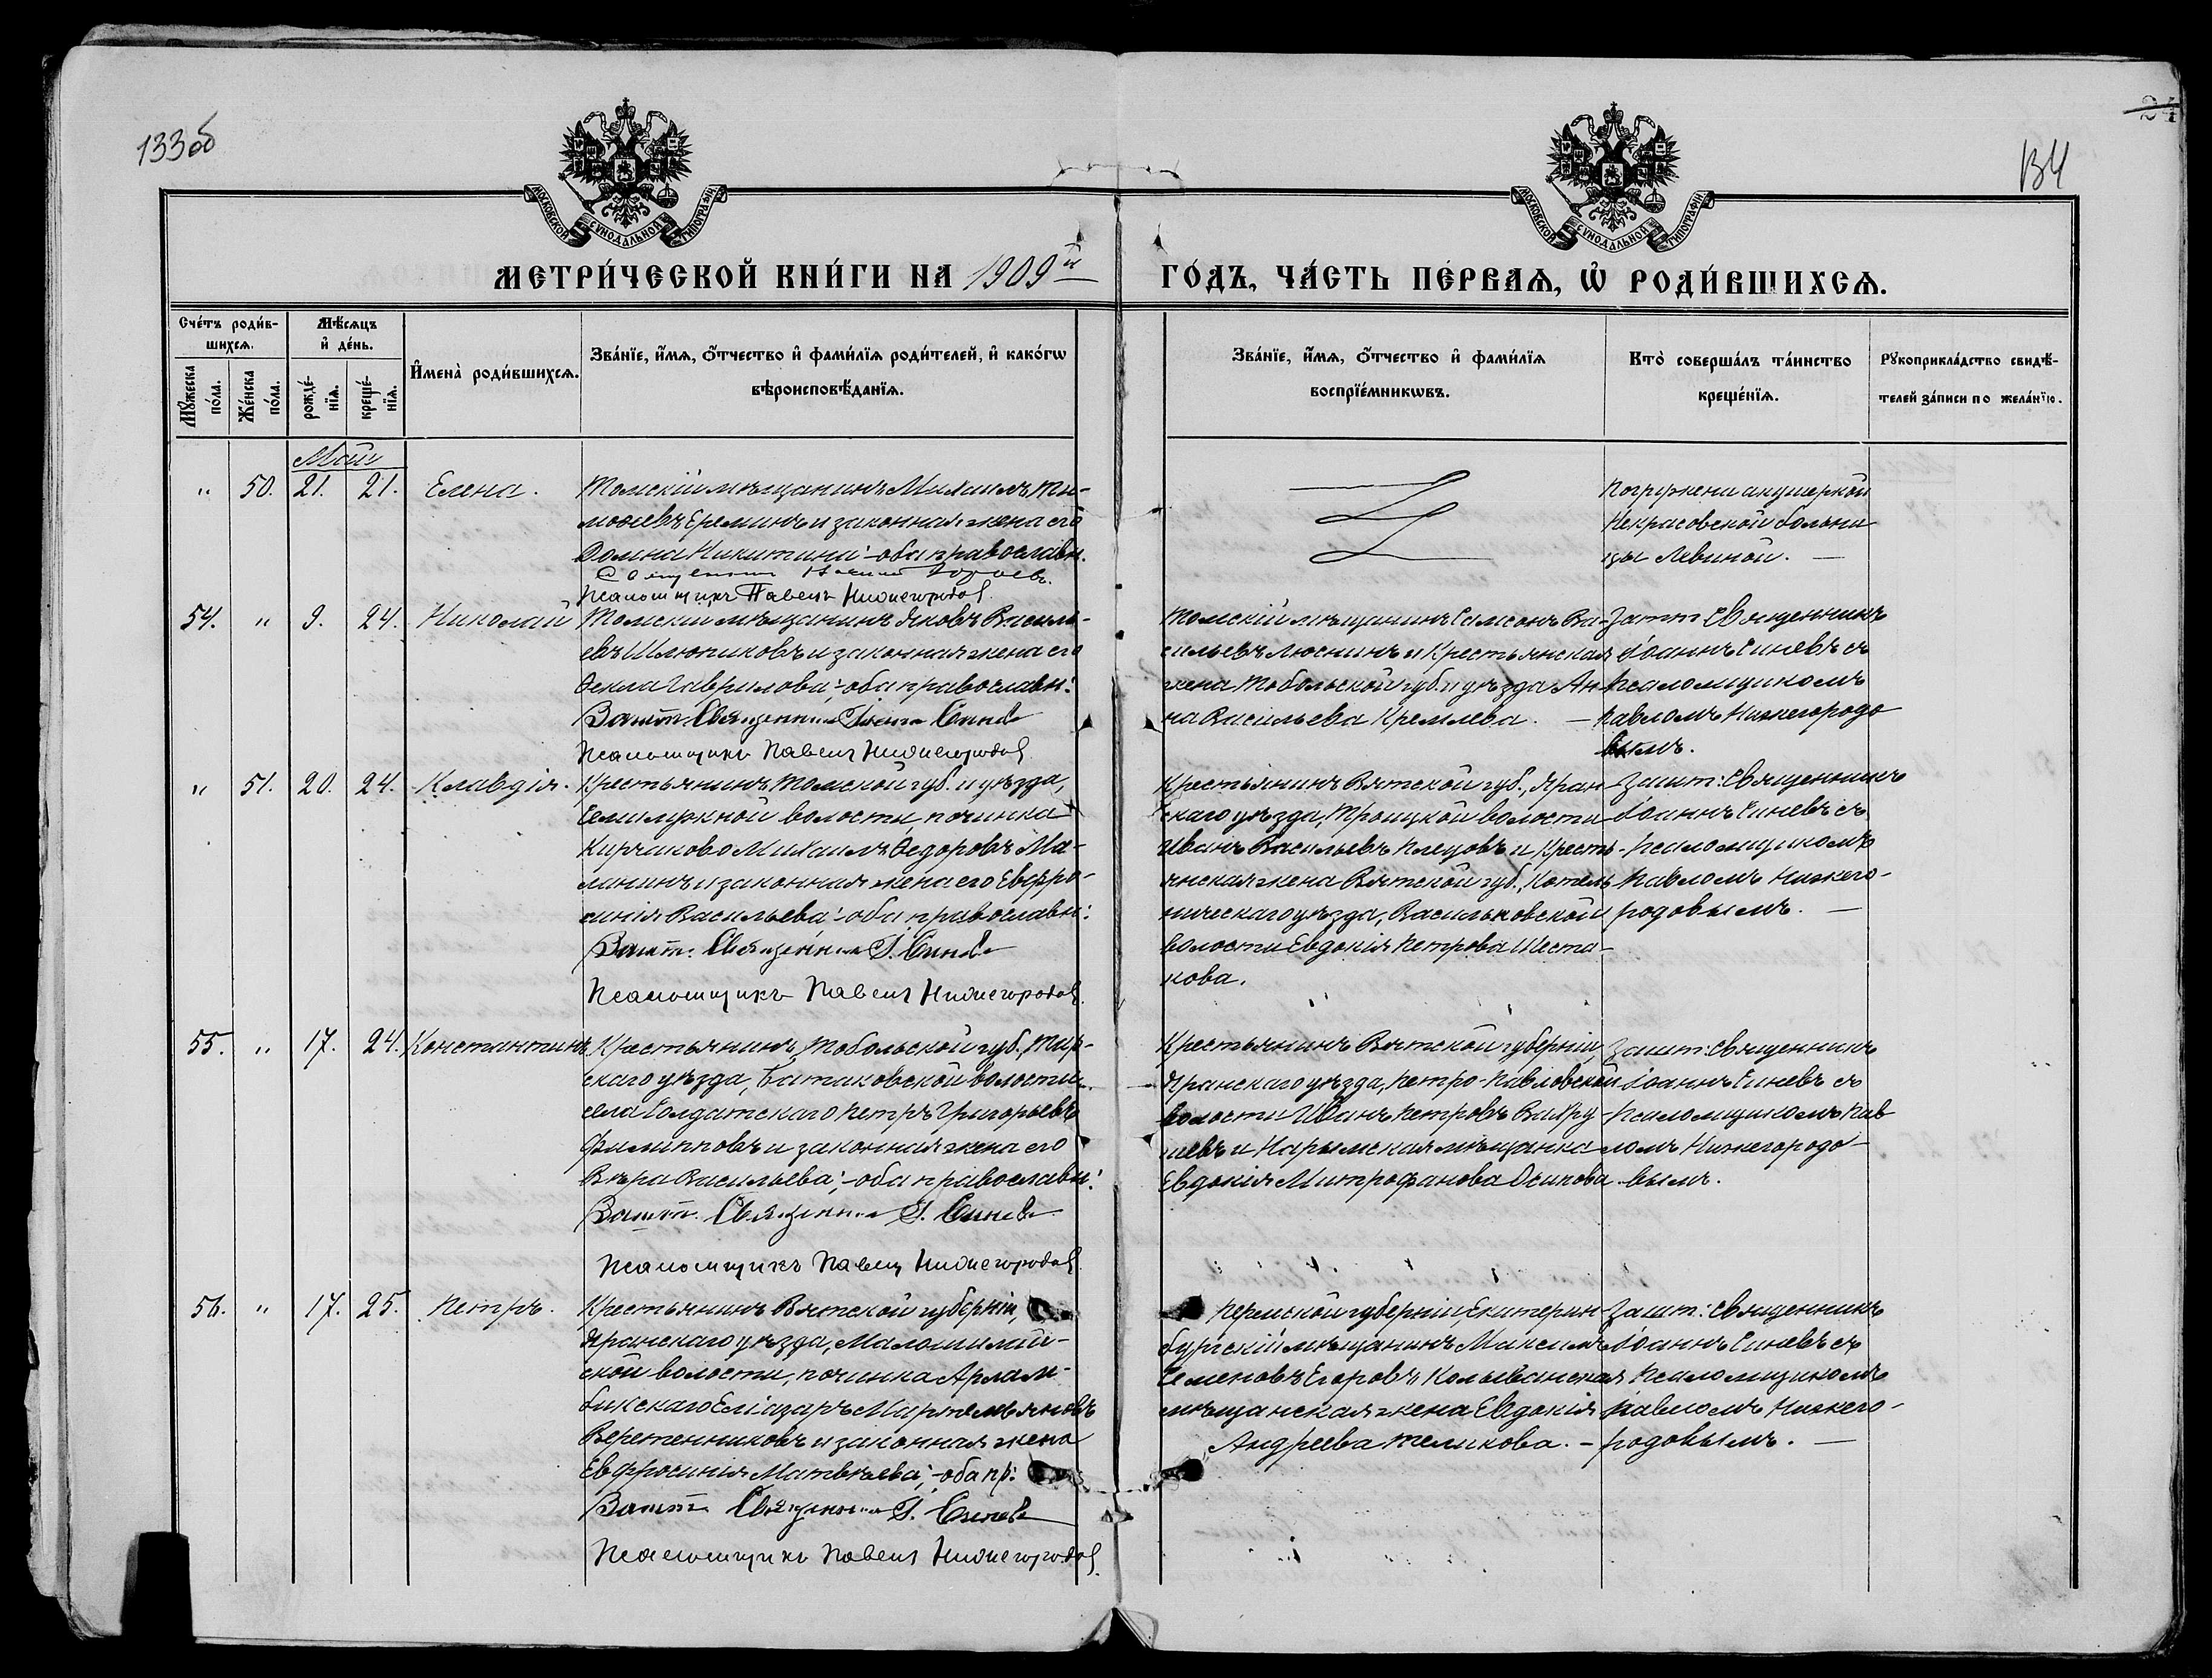 133об
134
24
МОСКОВСКОЙ СѴНОДАЛЬНОЙ ТИПОГРАФІИ
МОСКОВСКОЙ СѴНОДАЛЬНОЙ ТИПОГРАФІИ
МЕТРИ́ЧЕСКОЙ КНИ́ГИ НА 1909й
ГО́ДЪ, ЧА́СТЬ ПЕ́РВАѦ, Ѡ҆ РОДИ́ВШИХСѦ.
Сче́тъ роди́в-
шихсѧ.
Мꙋ́жеска по́ла.
Же́нска по́ла.
Мѣ́сѧцъ
и҆ де́нь.
рожде́-
нїѧ.
креще́-
нїѧ.
И҆мена̀ роди́вшихсѧ.
Зва́нїе, и҆́мѧ, ѻ҆́тчество и҆ фами́лїѧ роди́телей, и҆ како́гѡ
вѣроисповѣ́данїѧ.
Зва́нїе, и҆́мѧ, ѻ҆́тчество и҆ фами́лїѧ
воспрїе́мникѡвъ.
Кто̀ соверша́лъ та́инство
креще́нїѧ.
Рꙋкоприкла́дство свидѣ́-
телей за́писи по жела́нїю.
Май
" 50. 21. 21. Елена.
Томскій мѣщанинъ Михаилъ Ти-
моѳеевъ Ереминъ и законная жена его
Домна Никитина; - оба православн.
Псаломщикъ Павелъ Нижегородов
Погружена акушеркой
Некрасовской больни
цы Левиной. —
54. " 9. 24. Николай
Томскій мѣщанинъ Яковъ Василь-
евъ Шлюпиковъ и законная жена его
Ѳекла Гаврилова; - оба православн:
Зашт. Священник Іоанн Синев
Псаломщикъ Павелъ Нижегородов
Томскій мѣщанинъ Самсонъ Ва-
сильевъ Люснинъ и крестьянская
жена Тобольской губ. и уѣзда Ан-
на Васильева Кремлева. —
Зашт. Священникъ
Іоаннъ Синевъ съ
псаломщикомъ
Павломъ Нижегородо
вымъ.
" 51. 20. 24. Клавдія.
Крестьянинъ Томской губ. и уѣзда,
Семилужной волости, починка
Кирчаково Михаилъ Ѳедоровъ Ма-
лининъ и законная жена его Евфро-
синія Васильева; - оба православн:
Зашт. Священник І. Синев
Псаломщикъ Павелъ Нижегородов.
Крестьянинъ Вятской губ., Яран-
скаго уѣзда, Троицкой волости
Иванъ Васильевъ Плецовъ и крестъ-
янская жена Вятской губ., Котель
ническаго уѣзда, Васильковской
волости Евдокія Петрова Шеста-
кова.
Зашт: Священникъ
Іоаннъ Синевъ съ
псаломщикомъ
Павломъ Нижего-
родовымъ. —
55. " 17. 24. Константинъ
Крестьянинъ Тобольской губ., Тар-
скаго уѣзда, Бутаковской волости
села Солдатскаго Петръ Григорьевъ
Филипповъ и законная жена его
Вѣра Васильева; - оба православн:
Зашт. Священник І. Синев
Псаломщикъ Павелъ Нижегородов
Крестьянинъ Вятской губерніи,
Яранскаго уѣзда, Петро-Павловской
волости Иванъ Петровъ Вахру-
шевъ и Нарымская мѣщанка
Евдокія Митрофанова Осипова
Зашт: Священникъ
Іоаннъ Синевъ съ
псаломщикомъ Пав
ломъ Нижегородо-
вымъ.
56. " 17. 25. Петръ.
Крестьянинъ Вятской губерніи,
Яранскаго уѣзда, Малошилин-
ской волости, починка Арлам-
бикскаго Еліазаръ Мартемьяновъ
Веретенниковъ и законная жена
Евфросинія Матвѣева; - оба пр:
Зашт Священник І. Синев
Псаломщикъ Павелъ Нижегородов.
Пермской губерніи, Екатерин-
бургскій мѣщанинъ Максимъ
Семеновъ Егоровъ, Колыванская
мѣщанская жена Евдокія
Андреева Теликова. -
Зашт: Священникъ
Іоаннъ Синевъ съ
псаломщикомъ
Павломъ Нижего-
родовымъ. —